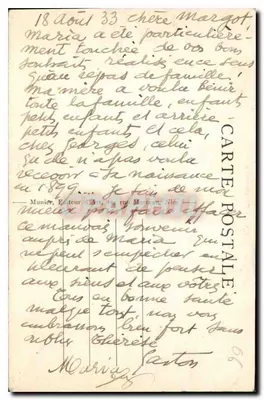 18 Août 33 chère Margot
Maria a été particulière-
ment touchée de vos bons
souhaits, réalisés en ce sens
qu'au repas de famille
Ma mère a voulu bénir
toute la famille, enfants
petits enfants et arrière-
petits enfants et cela,
chez Georges, celui
qu'elle n'a pas voulu
recevoir à sa naissance
en 1895.... Je fais de mon
mieux pour faire effacer
ce mauvais souvenir
auprès de Maria qui
ne peut s'empêcher en
de
aux siens et aux vôtres
Tous en bonne santé
malgré tout, nous vous
embrassons bien fort sans
oublier Thérèse
Maria Gaston
CARTE POSTALE
Musier, Editeur